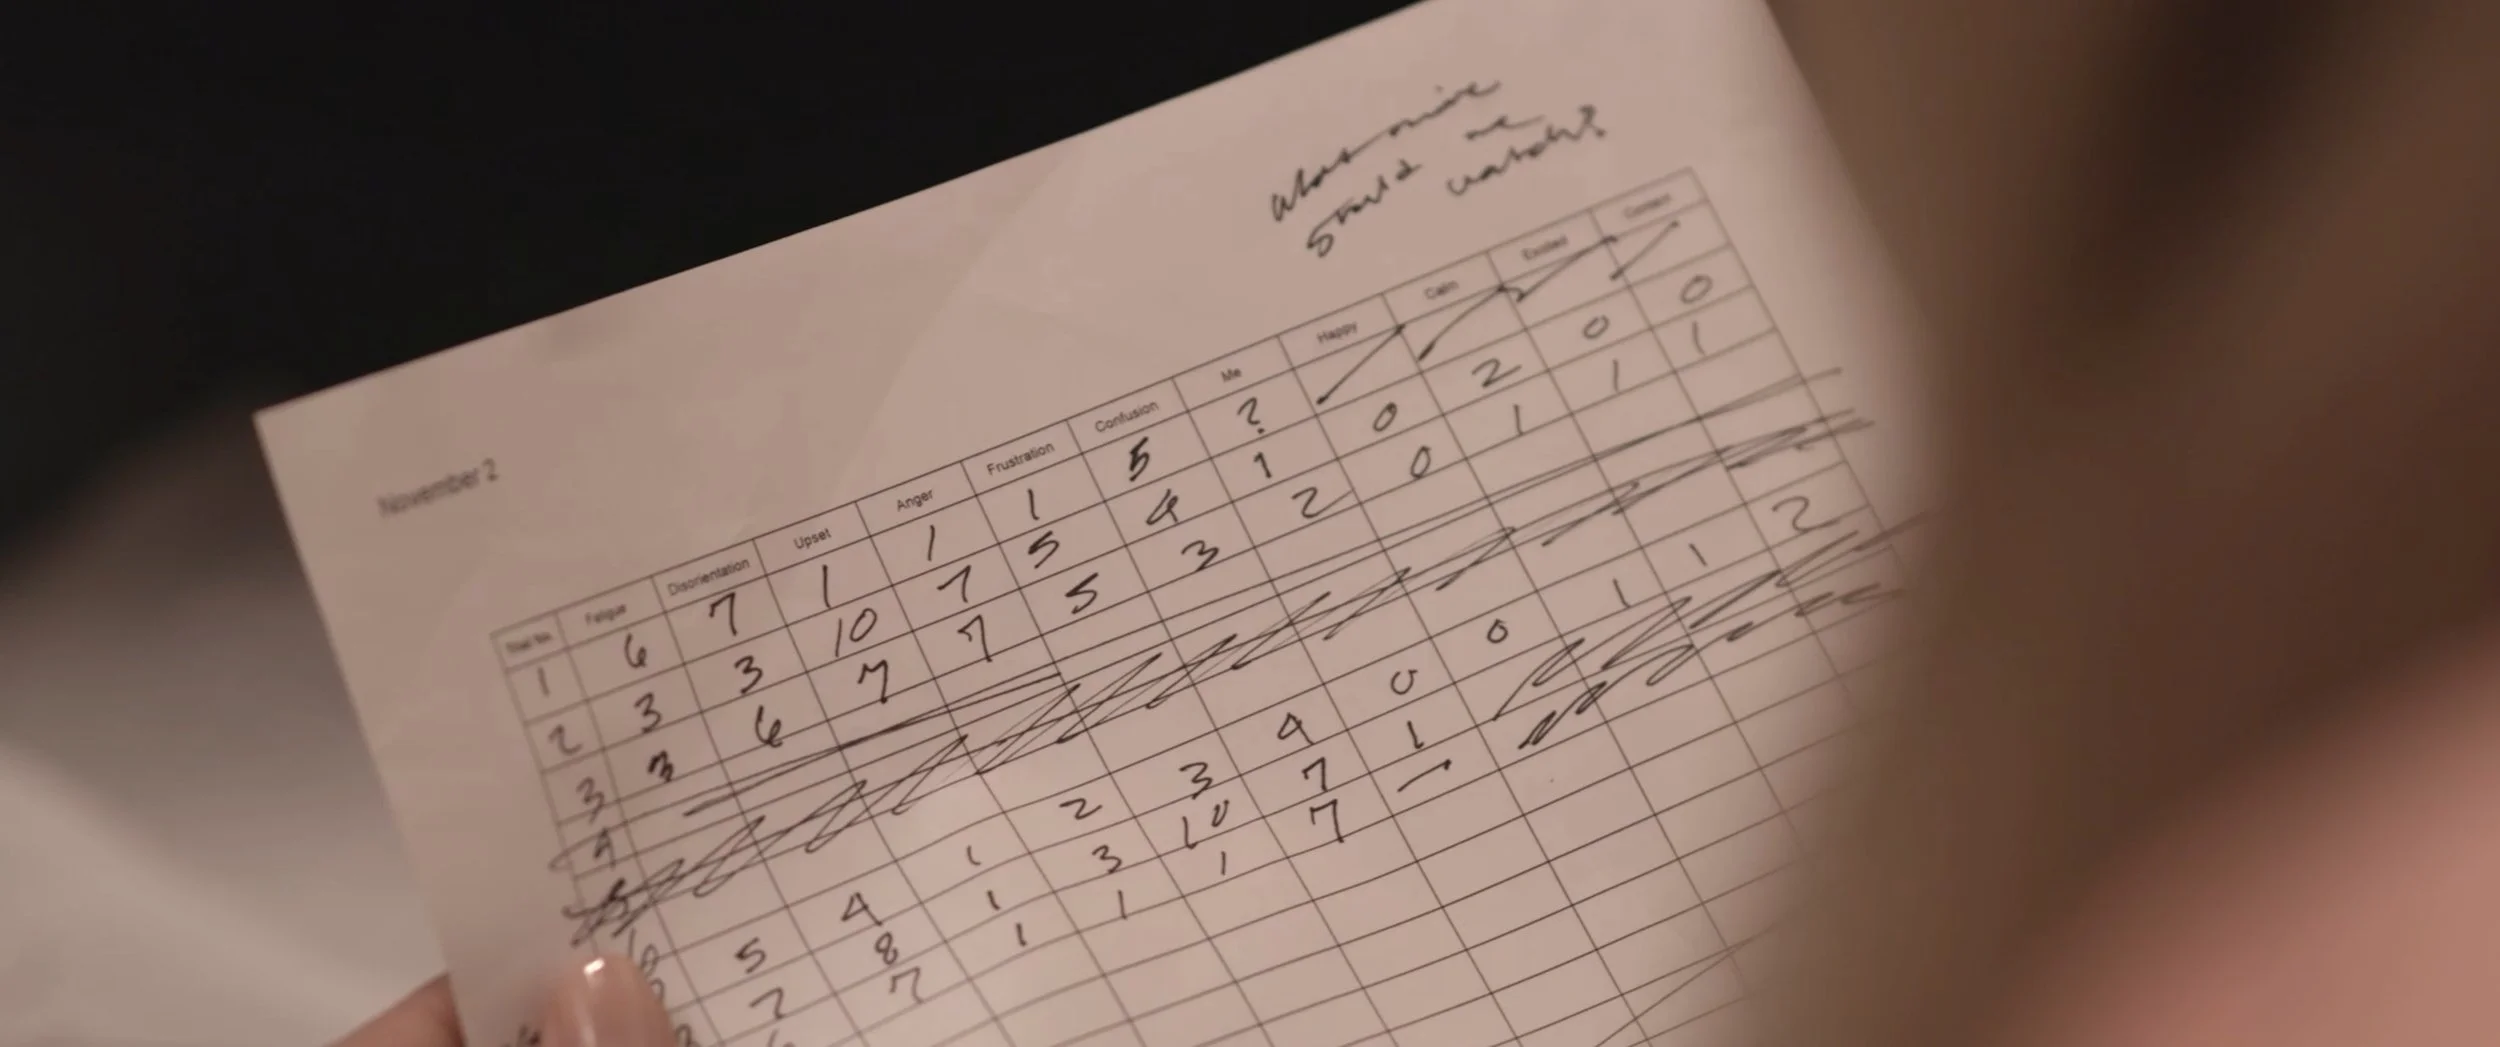 What more
should we
watch?
November 2
Trial No. Fatigue Disorientation Upset Anger Frustration Confusion Me Happy Calm Excited Content
1 6 7 1 1 1 5 ?
2 3 3 10 7 5 4 1 0 2 0 0
3 3 6 7 7 5 3 2 0 1 1 1
4
5
6 5 4 1 2 3 4 0 0 1 1 2
7 8 1 3 10 7 1
7 1 1 1 7 —